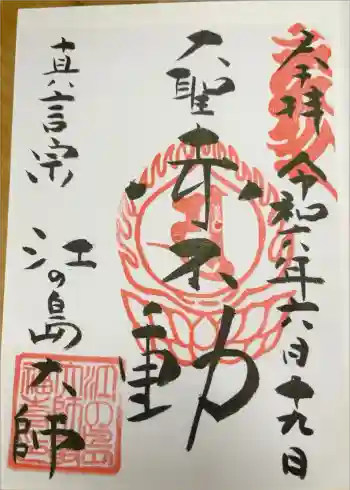 奉拝 令和六年六月十九日
大聖赤不動
真言宗
江の島大師